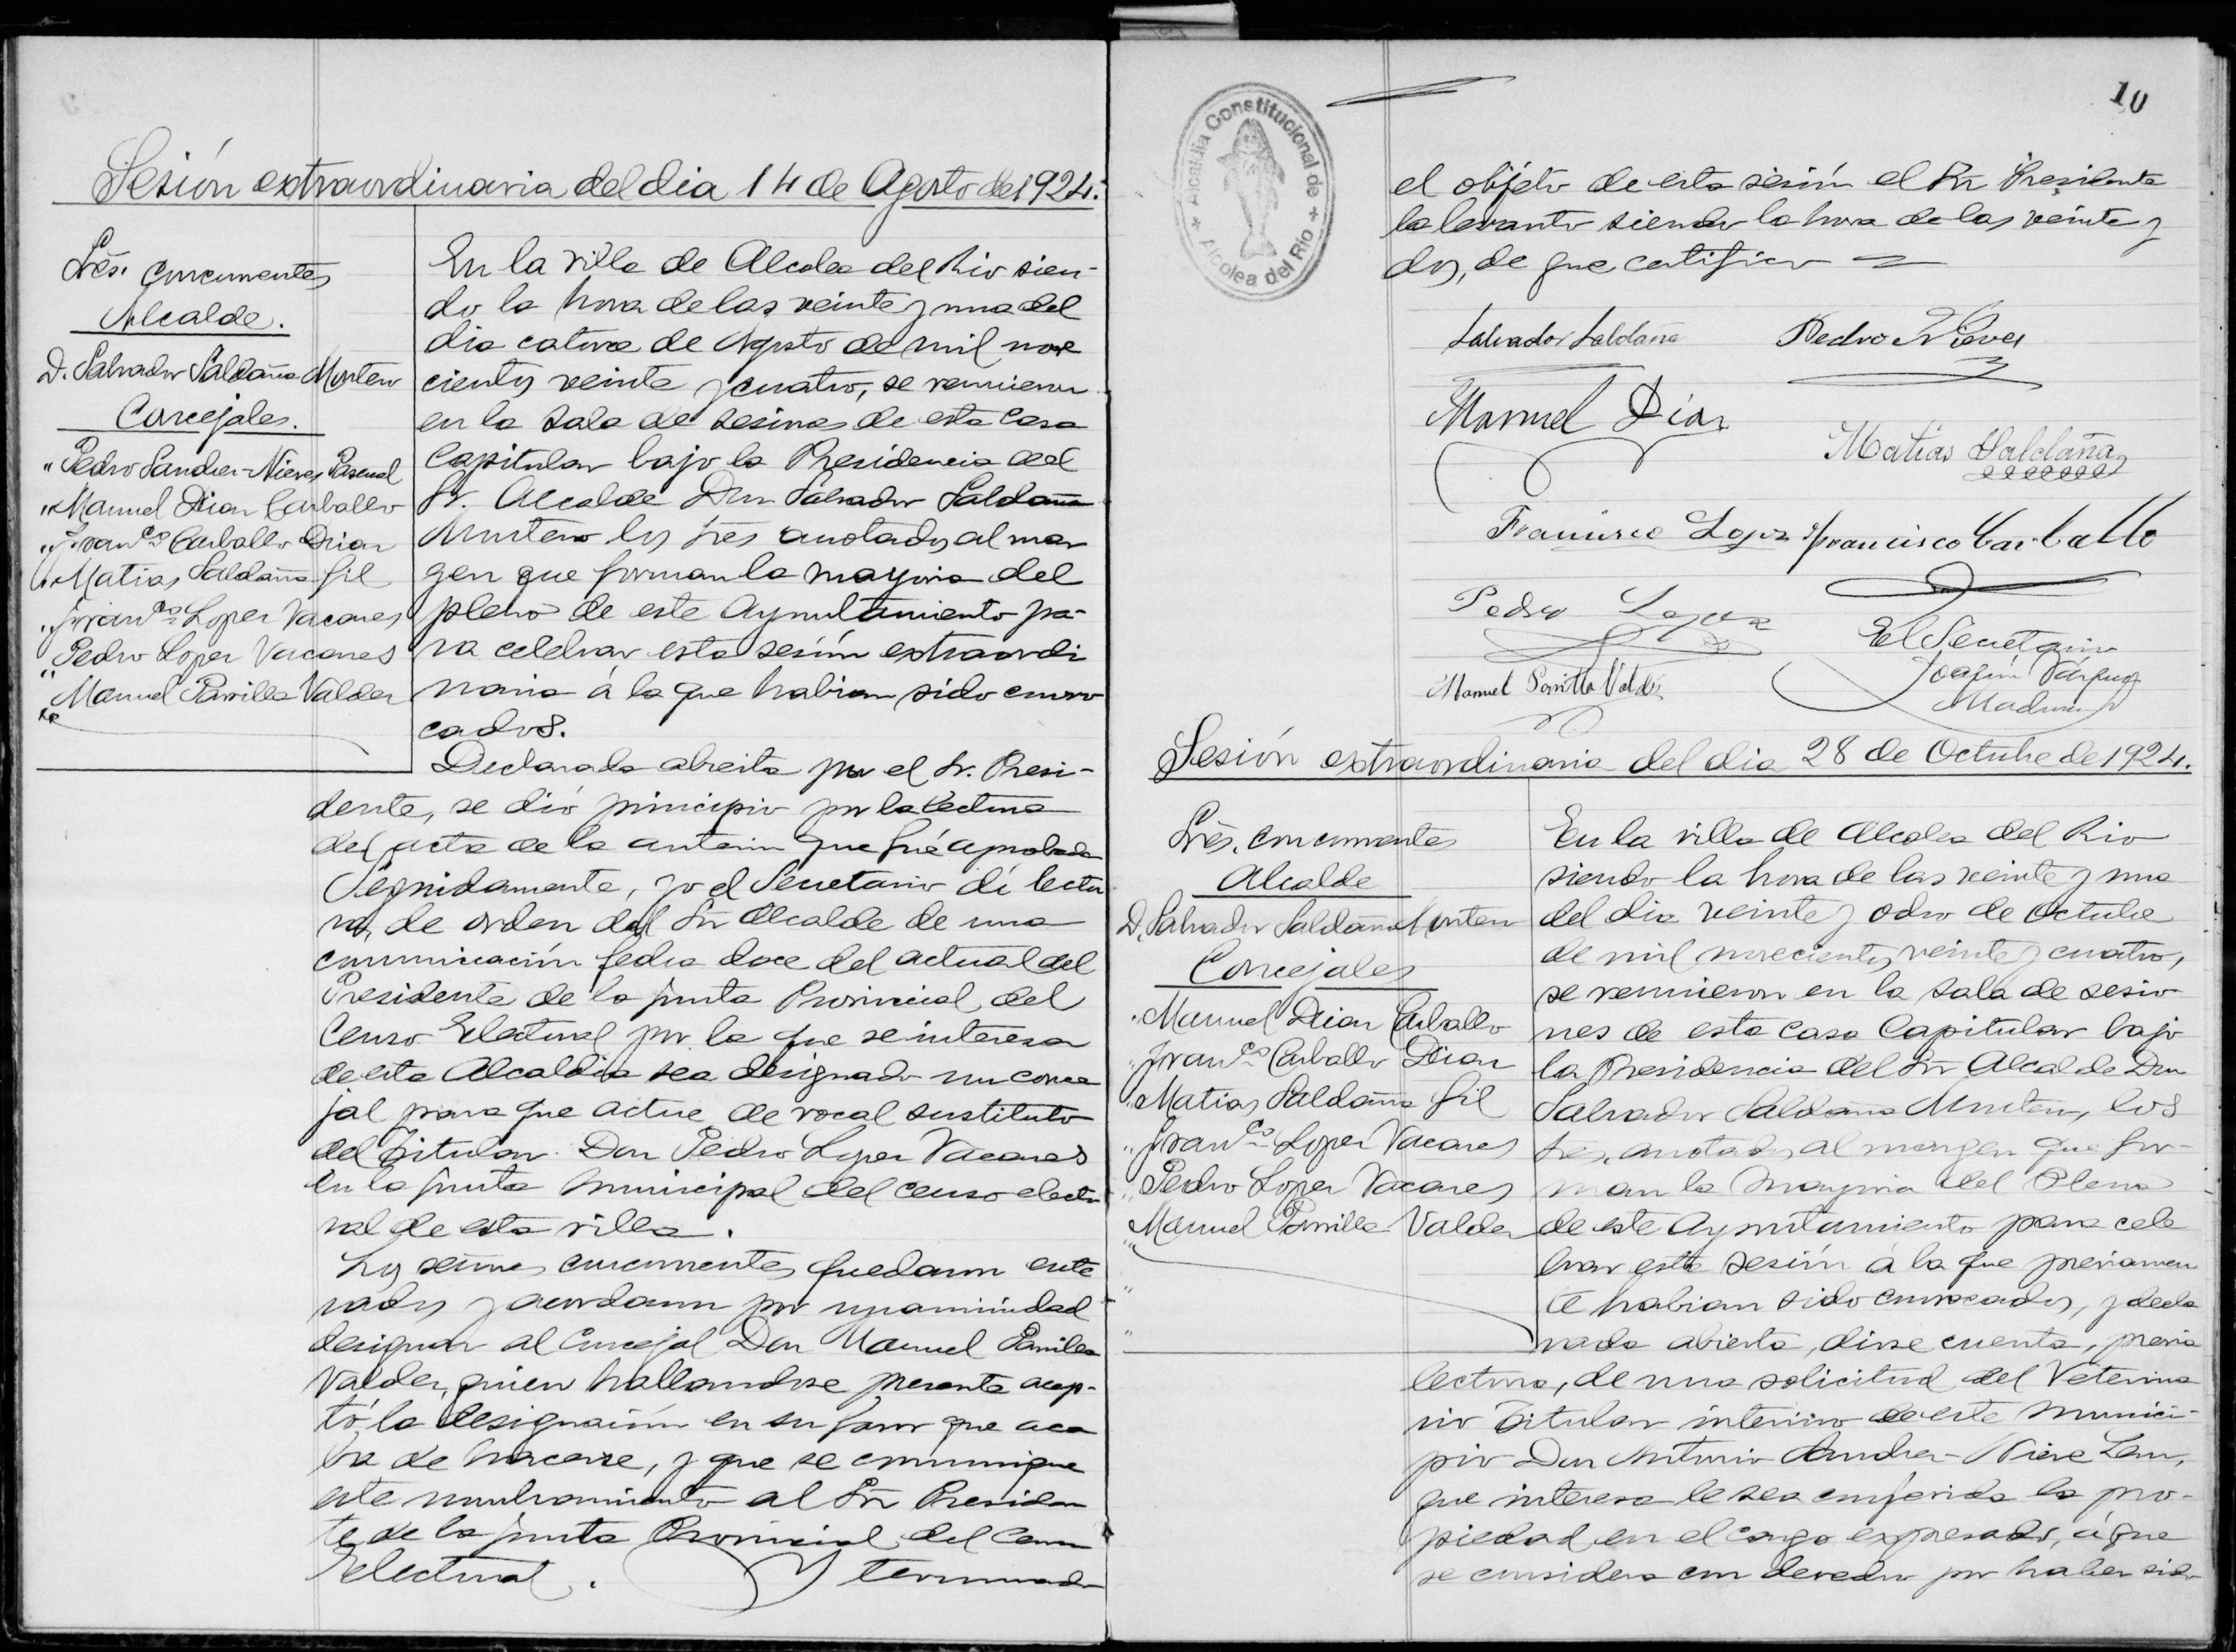 Sesión extraordinaria del dia 14 de Agosto de 1924.
Srēs. concurrentes
Alcalde.
D. Salvador Saldaña Montero
Concejales.
" Pedro Sanchez-Nieves Pascual
" Manuel Diaz Carballo
" Franco Carballo Diaz
" Matias Saldaña Gil
" Franco Lopez Vacares
" Pedro Lopez Vacares
" Manuel Parrilla Valdes
En la villa de Alcolea del Rio sien-
do la hora de las veinte y una del
dia catorce de Agosto de mil nove
cientos veinte y cuatro, se reunieron
en la sala de sesiones de esta Casa
Capitular bajo la Presidencia del
Sr. Alcalde Don Salvador Saldaña
Montero los Srēs anotados al mar
gen que forman la mayoria del
pleno de este Ayuntamiento pa-
ra celebrar esta sesión extraordi
naria á la que habian sido convo
cados.
Declarada abierta por el Sr. Presi-
dente, se dió principio por la lectura
del acta de la anterior que fué aprobada
Seguidamente, yo el Secretario dí lectu
ra, de orden del Sr Alcalde de una
comunicación fecha doce del actual del
Presidente de la junta Provincial del
Censo Electoral por la que se interesa
de esta Alcaldia sea designado un conce
jal para que actue de vocal sustituto
del Titular Don Pedro Lopez Vacares
en la junta municipal del censo electo
ral de esta villa.
Los señores concurrentes quedaron ente
rados y acordaron por unanimidad
designar al Concejal Don Manuel Parrilla
Valdes, quien hallandose presente acep-
tó, la designación en su favor que aca
ba de hacerse, y que se comunique
este nombramiento al Sr Presiden
te de la junta Provincial del Censo
Electoral. Y terminado
10
Alcaldia Constitucional de
Alcolea del Rio
el objeto de esta sesión el Sr Presidente
la levantó siendo la hora de las veinte y
dos, de que certifico
Salvador Saldaña Pedro Nieves
Manuel Diaz
Matias Saldaña
Francisco Lopez Francisco Carballo
Pedro Lopez
El Secretario
Manuel Parrilla Valdes
Joaquín Vázquez
Sesión extraordinaria del dia 28 de Octubre de 1924.
Srēs. concurrentes
Alcalde
D. Salvador Saldaña Montero
Concejales
" Manuel Diaz Carballo
" Franco Carballo Diaz
" Matias Saldaña Gil
" Franco Lopez Vacares
" Pedro Lopez Vacares
Manuel Parrilla Valdes
En la villa de Alcolea del Rio
siendo la hora de las veinte y una
del dia veinte y ocho de Octubre
de mil novecientos veinte y cuatro,
se reunieron en la sala de sesio
nes de esta casa Capitular bajo
la Presidencia del Sr Alcalde Don
Salvador Saldaña Montero, los
Srēs. anotados al margen que for-
man la mayoria del Pleno
de este Ayuntamiento para cele
brar esta sesión á la que previamen
te habian sido convocados, y decla
rada abierta, dióse cuenta, previa
lectura, de una solicitud del Veterina
rio Titular interino de este munici-
pio Don Antonio Sanchez-Nieve
que interesa le sea conferida la pro-
piedad en el cargo expresado, á que
se considera con derecho por haber sido